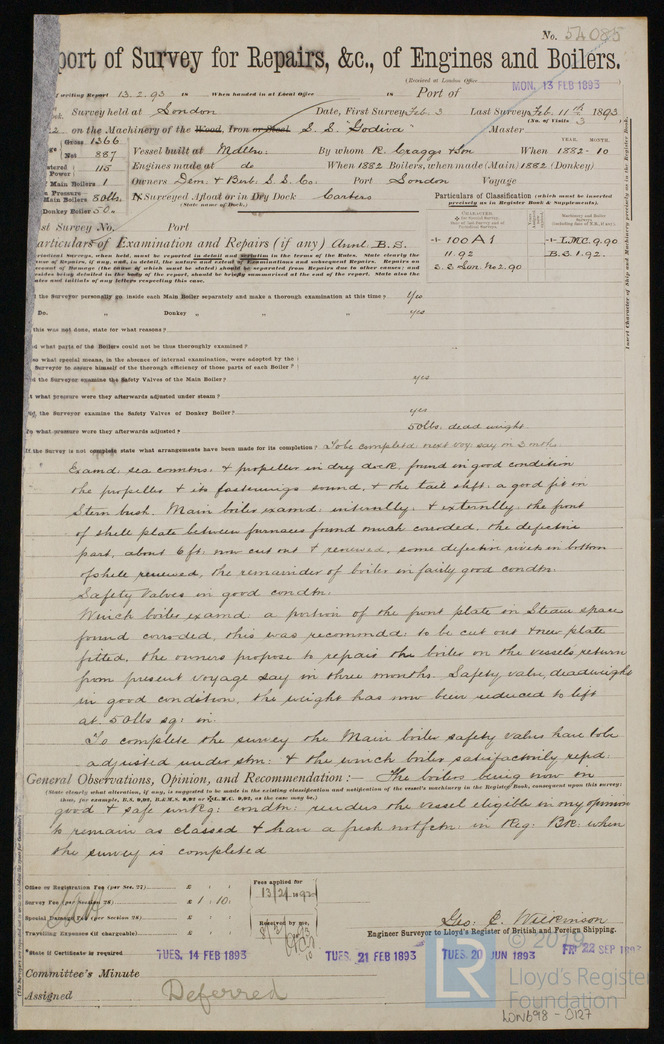 No. 54085
port of Survey for Repairs, &c., of Engines and Boilers.
(Received at London Office
MON. 13 FEB 1893
writing Report 13.2.93 18 When handed in at Local Office 18 Port of
Survey held at London Date, First Survey Feb. 3 Last Survey Feb. 11th 1893
(No. of Visits 3)
on the Machinery of the Wood, Iron or Steel S.S. "Godiva" Master
Gross 1366
Net 887
Vessel built at Mdlbro: By whom R. Craggs & Son When 1882 - 10
YEAR. MONTH.
Power 115
Engines made at do When 1882 Boilers, when made (Main) 1882 (Donkey)
Main Boilers 1
Owners Dem. & Berb. S.S. Co: Port London Voyage
Pressure
Main Boilers 80lbs.
Donkey Boiler 50.
If Surveyed Afloat or in Dry Dock Carters
(State name of Dock.)
Particulars of Classification (which must be inserted
precisely as in Register Book & Supplements).
st Survey No. Port
articulars of Examination and Repairs (if any) Annl. B.S.
+ 100 A1
11.92
S.S. Lon. No 2.90
+ L.M.C. 9.90
B.S. 1.92.
Insert Character of Ship and Machinery precisely as in the Register Book
the Surveyor personally go inside each Main Boiler separately and make a thorough examination at this time? Yes
Do. " Donkey " " " yes
this was not done, state for what reasons?
what parts of the Boilers could not be thus thoroughly examined?
what special means, in the absence of internal examination, were adopted by the
Surveyor to assure himself of the thorough efficiency of those parts of each Boiler?
the Surveyor examine the Safety Valves of the Main Boiler? yes
what pressure were they afterwards adjusted under steam?
the Surveyor examine the Safety Valves of Donkey Boiler? yes
To what pressure were they afterwards adjusted? 50lbs. dead weight
If the Survey is not complete state what arrangements have been made for its completion? To be completed next voy: say in 3 mths.
Examd: sea conntns: & propeller in dry dock, found in good condition
the propeller & its fastenings sound, & the tail shft: a good fit in
Stern bush. Main boiler examd: internally: & externally: the front
of shell plate between furnaces found much corroded, the defective
part, about 6 ft: now cut out & renewed, some defective rivets in bottom
of shell renewed, the remainder of boiler in fairly good condtn:
Safety Valves in good condtn:
Winch boiler examd: a portion of the front plate in Steam space
found corroded, this was recommdd: to be cut out & new plate
fitted, the owners propose to repair the boiler on the vessels return
from present voyage say in three months. Safety valve, deadweight
in good condition, the weight has now been reduced to lift
at 50lbs sq: in.
To complete the survey the Main boiler safety valves have to be
adjusted under stm: & the winch boiler satisfactorily repd:
General Observations, Opinion, and Recommendation:— The boilers being now in
(State clearly what alteration, if any, is suggested to be made in the existing classification and notification of the vessel's machinery in the Register Book, consequent upon this survey;
good & safe wrkg: condtn: renders the vessel eligible in my opinion
to remain as classed & have a fresh notfctn: in Reg: Bk: when
the survey is completed
Office or Registration Fee (per Sec. 27) £
Survey Fee (per Section 28) £ 1 : 10 :
Special Damage Fee (per Section 28) £
Travelling Expenses (if chargeable) £
Fees applied for
13/2/1893
Received by me,
Geo: E. Wilkinson
Engineer Surveyor to Lloyd's Register of British and Foreign Shipping.
State if Certificate is required
TUES. 14 FEB 1893 TUES. 21 FEB 1893 TUES. 20 JUN 1893 FRI 22 SEP 1893
Committee's Minute
Assigned Deferred
© 2019
LR
Lloyd's Register
Foundation
LDN698-0127